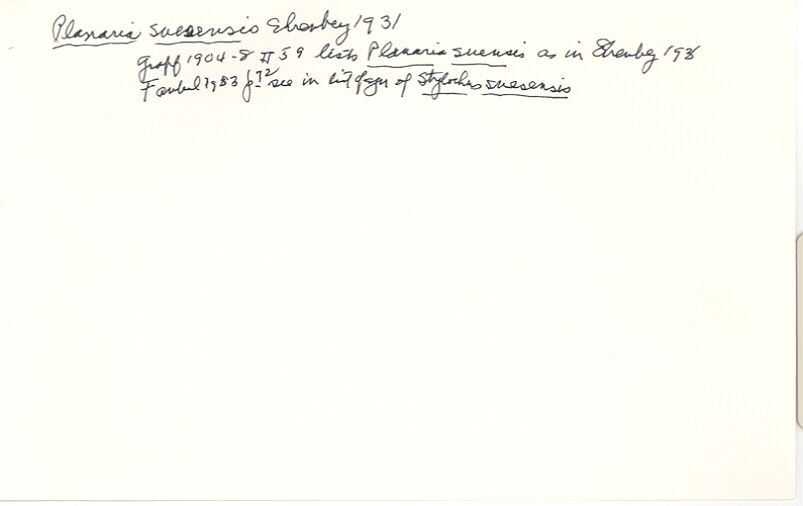 Planaria suesensis Ehrenberg 1931
Graff 1904-8 II 59 lists Planaria suensis as in Ehrenberg 1931
Faubel 1983 p. 72 see in list of syn of Stylochus suesensis